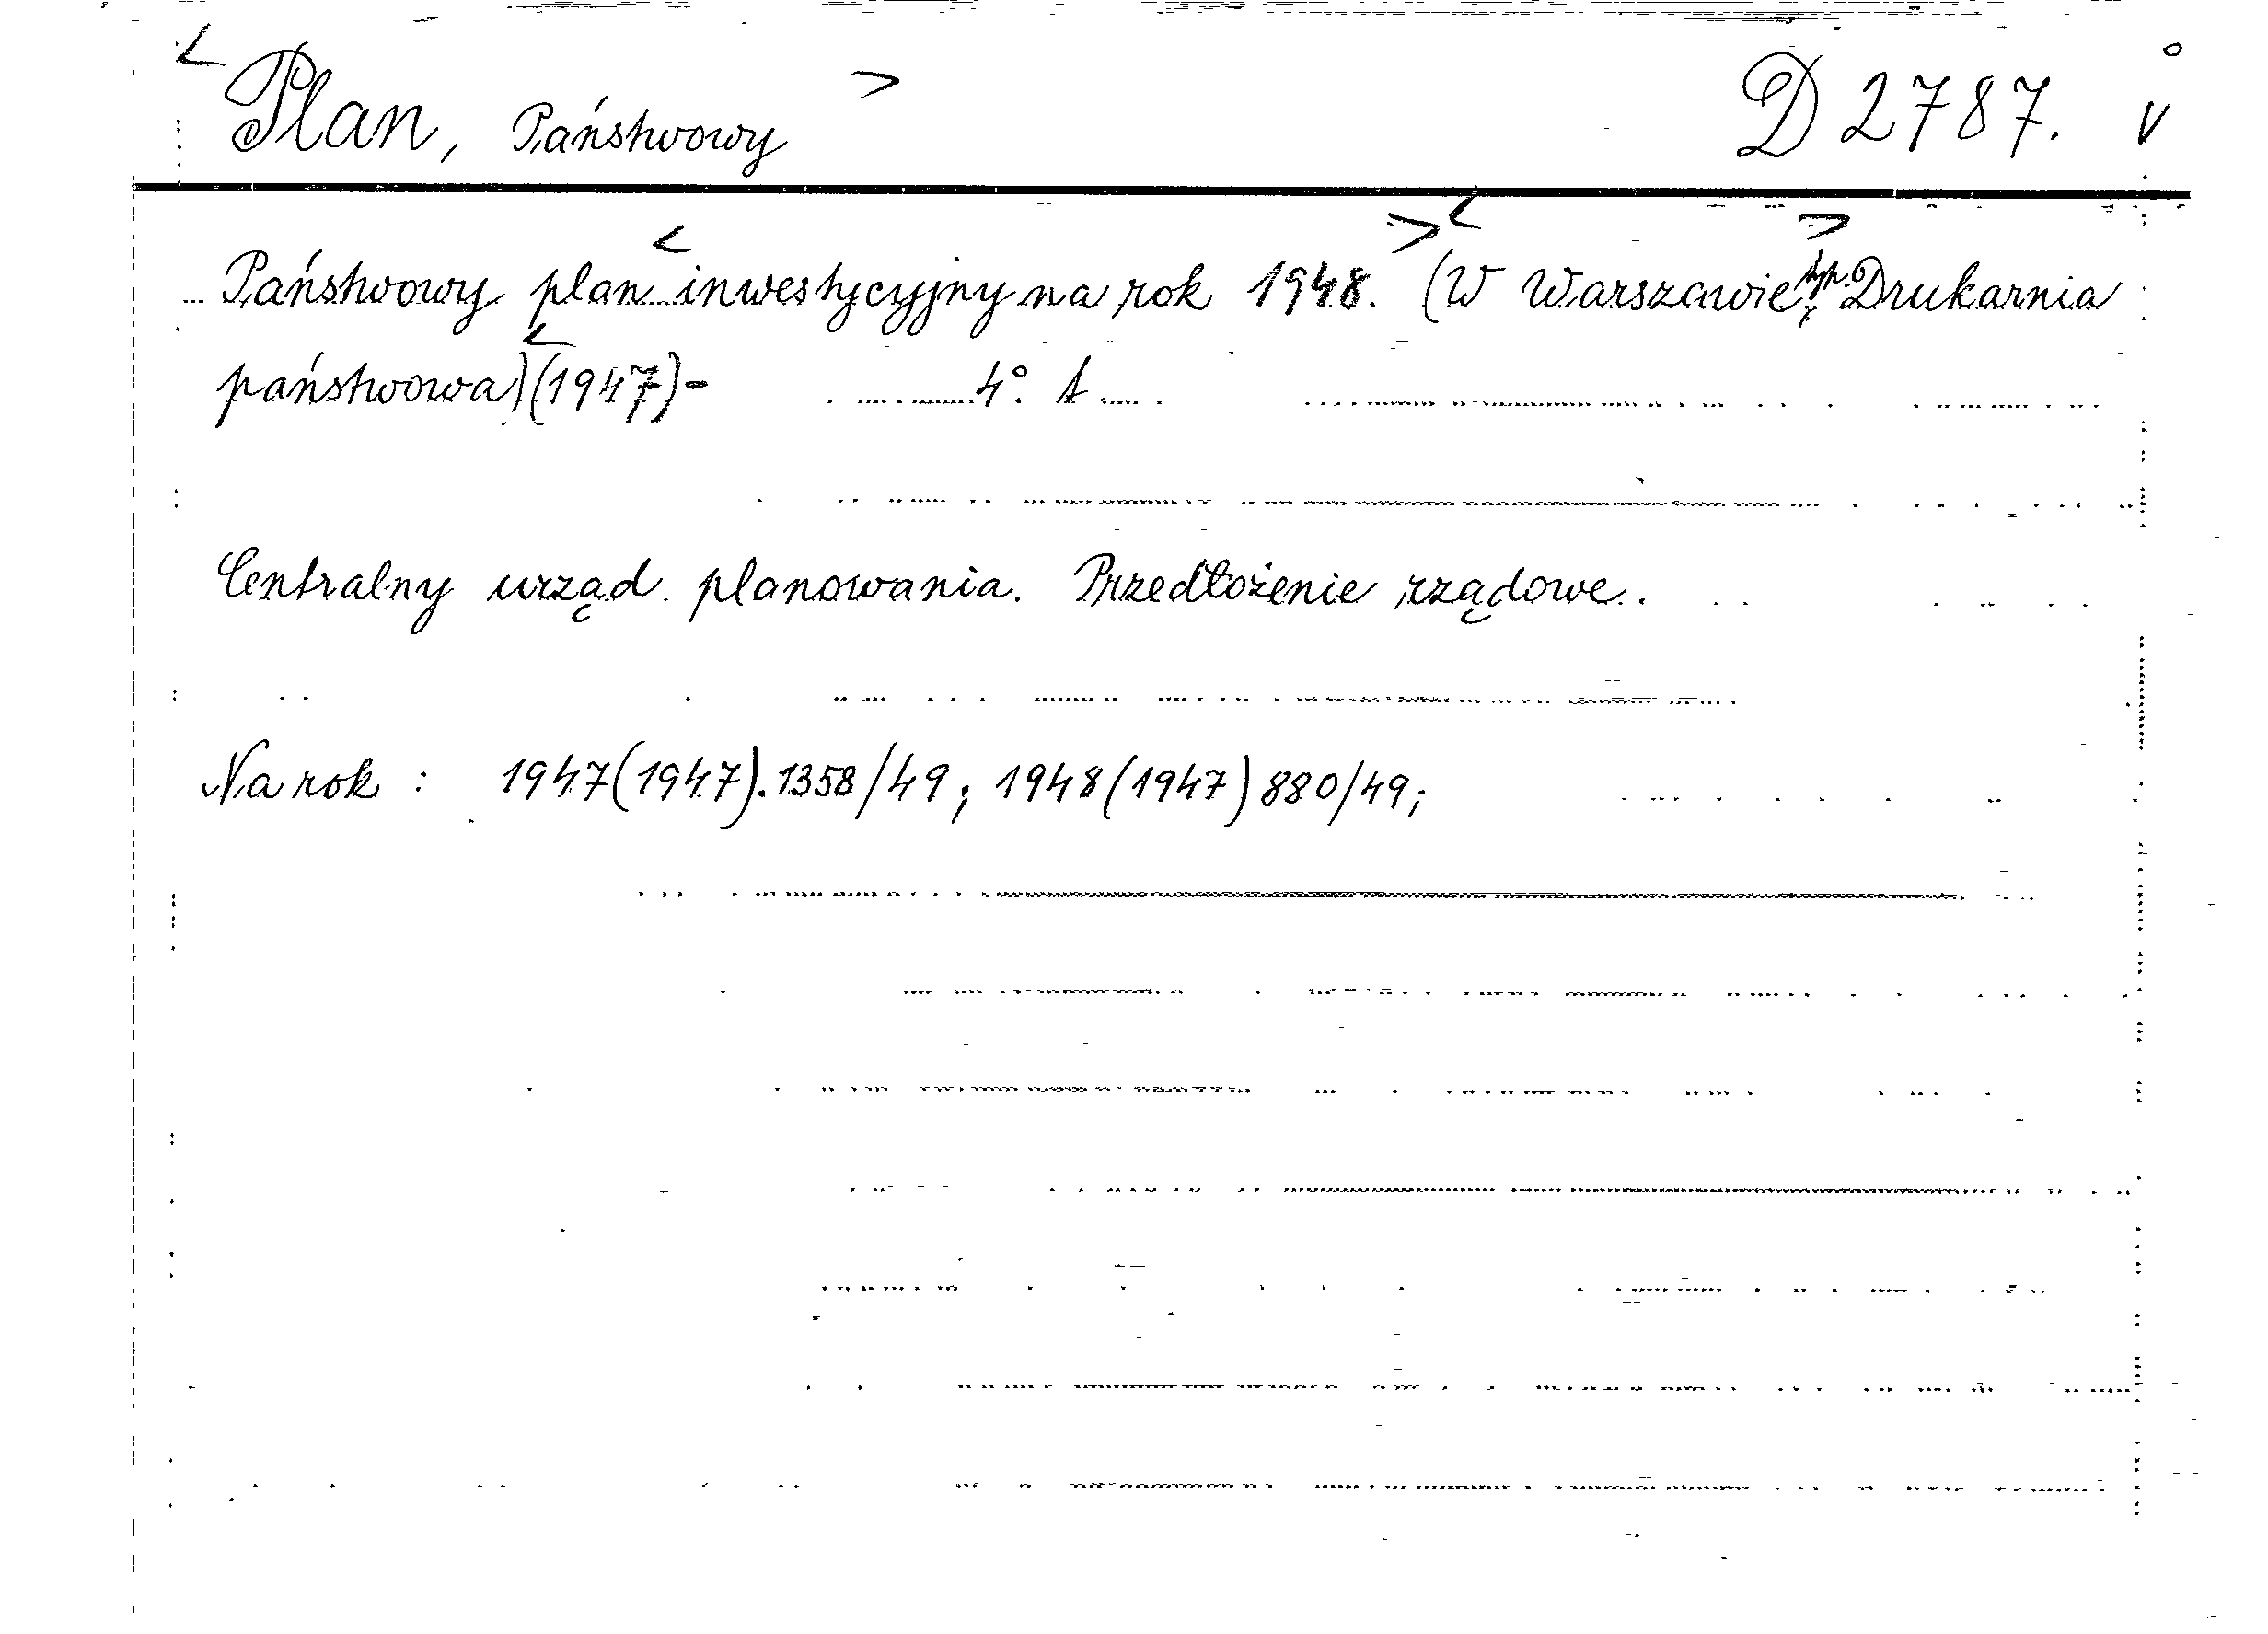 <Plan, Państwowy> D 2787. v
Państwowy plan <inwestycyjny na rok 1948.> <(W Warszawie, typ.> Drukarnia
państwowa) <(1947)- 4°. A
Centralny urząd planowania. Przedłożenie rządowe.
Na rok : 1947(1947).1358/49; 1948(1947)880/49;